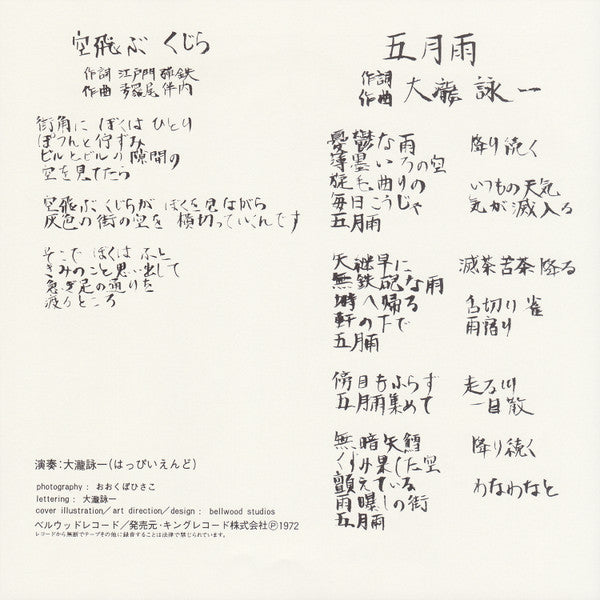 空飛ぶ くじら
作詞 江戸門弾鉄
作曲 多羅尾伴内
街角に ぼくは ひとり
ぽつんと佇ずみ
ビルとビルの 隙間の
空を見てたら
空飛ぶ くじらが ぼくを見ながら
灰色の街の空を 横切っていくんです
そこで ぼくは ふと
きみのこと思い出して
急ぎ足の通りを
渡るところ
演奏:大瀧詠一(はっぴいえんど)
photography : おおくぼひさこ
lettering : 大瀧詠一
cover illustration/art direction/design : bellwood studios
ベルウッドレコード/発売元・キングレコード株式会社Ⓟ1972
レコードから無断でテープその他に録音することは法律で禁じられています。
五月雨
作詞
作曲 大瀧 詠一
憂鬱な雨 降り続く
薄墨いろの空
旋毛曲りの いつもの天気
毎日こうじゃ 気が滅入る
五月雨
矢継早に 滅茶苦茶降る
無鉄砲な雨
塒へ帰る 舌切り雀
軒の下で 雨宿り
五月雨
傍目もふらず 走る川
五月雨集めて 一目散
無暗矢鱈 降り続く
くすみ果した空
顫えている わなわなと
雨曝しの街
五月雨